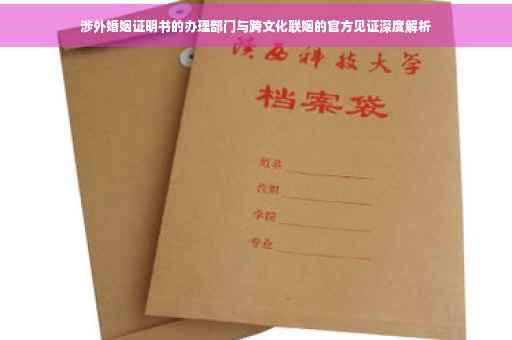 涉外婚姻证明书的办理部门与跨文化联姻的官方见证深度解析
陕西科技大学
档案袋
姓名
学院
专业